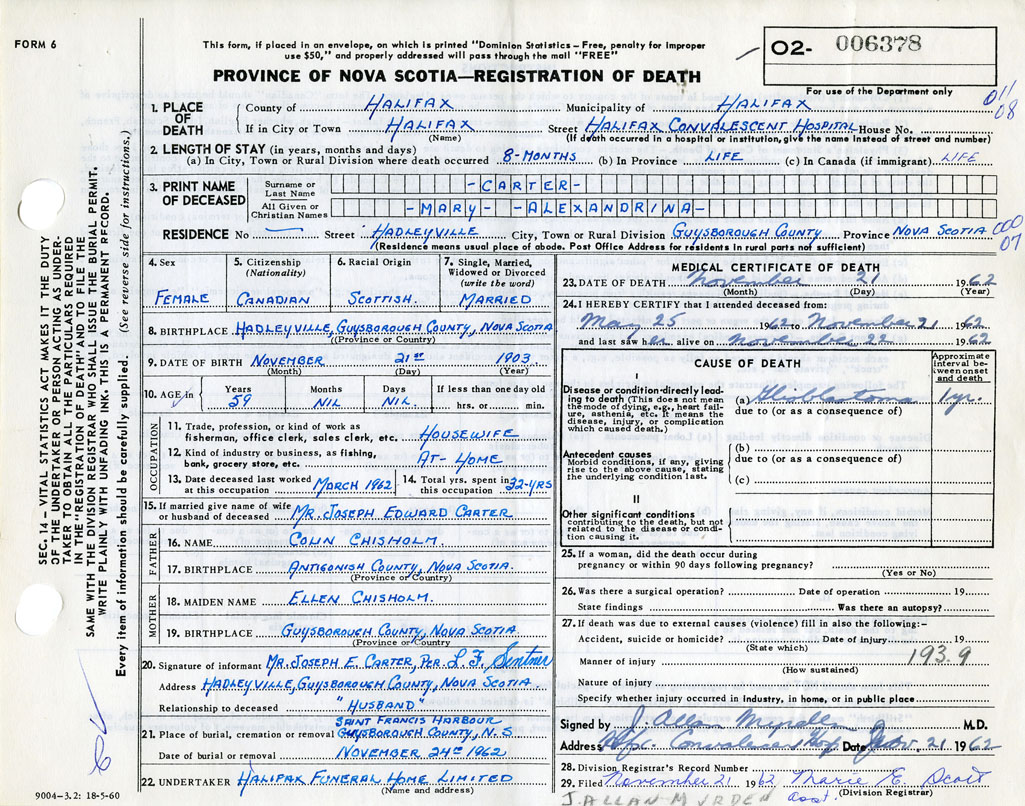 FORM 6
This form, if placed in an envelope, on which is printed "Dominion Statistics – Free, penalty for improper
use $50," and properly addressed will pass through the mail "FREE"
PROVINCE OF NOVA SCOTIA—REGISTRATION OF DEATH
O2- 006378
For use of the Department only
011
08
1. PLACE OF DEATH
County of HALIFAX Municipality of HALIFAX
If in City or Town HALIFAX Street HALIFAX CONVALESCENT HOSPITAL House No.
(Name) (If death occurred in a hospital or institution, give the name instead of street and number)
2. LENGTH OF STAY (in years, months and days)
(a) In City, Town or Rural Division where death occurred 8-MONTHS (b) In Province LIFE (c) In Canada (if immigrant) LIFE
3. PRINT NAME OF DECEASED
Surname or Last Name -CARTER-
All Given or Christian Names -MARY- -ALEXANDRINA-
RESIDENCE No — Street HADLEYVILLE City, Town or Rural Division GUYSBOROUGH COUNTY Province NOVA SCOTIA
000
07
(Residence means usual place of abode. Post Office Address for residents in rural parts not sufficient)
4. Sex
FEMALE
5. Citizenship
(Nationality)
CANADIAN
6. Racial Origin
SCOTTISH.
7. Single, Married,
Widowed or Divorced
(write the word)
MARRIED
8. BIRTHPLACE HADLEYVILLE, GUYSBOROUGH COUNTY, NOVA SCOTIA
(Province or County)
9. DATE OF BIRTH NOVEMBER 21ST 1903
(Month) (Day) (Year)
10. AGE in Years Months Days If less than one day old
59 NIL NIL. hrs. or min.
OCCUPATION
11. Trade, profession, or kind of work as
fisherman, office clerk, sales clerk, etc. HOUSEWIFE
12. Kind of industry or business, as fishing,
bank, grocery store, etc. AT-HOME
13. Date deceased last worked
at this occupation MARCH 1962
14. Total yrs. spent in
this occupation 32-YRS
15. If married give name of wife
or husband of deceased MR. JOSEPH EDWARD CARTER
FATHER
16. NAME COLIN CHISHOLM.
17. BIRTHPLACE ANTIGONISH COUNTY, NOVA SCOTIA.
(Province or Country)
MOTHER
18. MAIDEN NAME ELLEN CHISHOLM.
19. BIRTHPLACE GUYSBOROUGH COUNTY, NOVA SCOTIA
(Province or Country)
20. Signature of informant MR. JOSEPH E. CARTER, PER. L. F.
Address HADLEYVILLE, GUYSBOROUGH COUNTY, NOVA SCOTIA
Relationship to deceased "HUSBAND"
SAINT FRANCIS HARBOUR
21. Place of burial, cremation or removal GUYSBOROUGH COUNTY, N.S
Date of burial or removal NOVEMBER 24TH 1962
22. UNDERTAKER HALIFAX FUNERAL HOME LIMITED
(Name and address)
9004-3.2: 18-5-60
MEDICAL CERTIFICATE OF DEATH
23. DATE OF DEATH November 21 1962
(Month) (Day) (Year)
24. I HEREBY CERTIFY that I attended deceased from:
May 25 1962 to November 21 1962
and last saw her alive on November 22 1962
CAUSE OF DEATH
Approximate
interval be-
tween onset
and death
I
Disease or condition directly lead-
ing to death (This does not mean
the mode of dying, e.g., heart fail-
ure, asthenia, etc. It means the
disease, injury, or complication
which caused death.)
(a) Glioblastoma 1 yr.
due to (or as a consequence of)
Antecedent causes
Morbid conditions, if any, giving
rise to the above cause, stating
the underlying condition last.
(b)
due to (or as a consequence of)
(c)
II
Other significant conditions
contributing to the death, but not
related to the disease or condi-
tion causing it.
25. If a woman, did the death occur during
pregnancy or within 90 days following pregnancy?
(Yes or No)
26. Was there a surgical operation? Date of operation 19
State findings Was there an autopsy?
27. If death was due to external causes (violence) fill in also the following:-
Accident, suicide or homicide? Date of injury 19
(State which)
193.9
Manner of injury
(How sustained)
Nature of injury
Specify whether injury occurred in industry, in home, or in public place
Signed by J. Allan M.D.
Address Hfx. Convalescent Hosp. Date Nov. 21 1962
28. Division Registrar's Record Number
29. Filed November 21 1962 Marie E. Scott
(Division Registrar)
J. ALLAN MYRDEN asst.
SEC. 14 – VITAL STATISTICS ACT MAKES IT THE DUTY
OF THE UNDERTAKER OR PERSON ACTING AS UNDER-
TAKER TO OBTAIN ALL THE PARTICULARS REQUIRED
IN THE "REGISTRATION OF DEATH" AND TO FILE THE
SAME WITH THE DIVISION REGISTRAR WHO SHALL ISSUE THE BURIAL PERMIT.
WRITE PLAINLY WITH UNFADING INK. THIS IS A PERMANENT RECORD.
Every item of information should be carefully supplied. (See reverse side for instructions.)